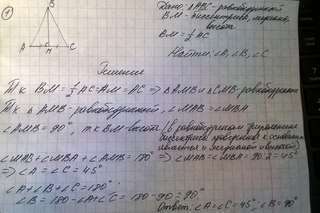 ①
Дано: △ABC - равнобедренный
BM - биссектриса, медиана,
высота
BM = ½ AC
Найти: ∠A, ∠B, ∠C
B
A M C
Решение
Т.к BM = ½ AC = AM = MC ⇒ △AMB и △CMB - равнобедр.
Т.к △ AMB - равнобедренный, ∠MAB = ∠MBA
∠AMB = 90°, т.к BM - высота (в равнобедренном треугольнике
биссектриса проведенная к основанию
является и медианой и высотой)
∠MAB + ∠MBA + ∠AMB = 180° ⇒ ∠MAB = ∠MBA = 90:2 = 45°
⇒ ∠A = ∠C = 45°
∠A + ∠B + ∠C = 180°
∠B = 180 - ∠A + ∠C = 180 - 90 = 90°
Ответ: ∠A = ∠C = 45° ∠B = 90°